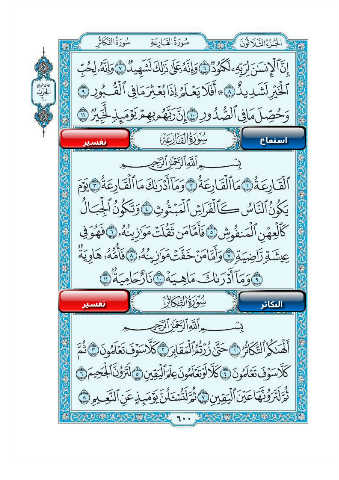 سُورَةُ التَّكَاثُرِ سُورَةُ القَارِعَةِ الجُزْءُ الثَّلَاثُونَ
إِنَّ الْإِنسَانَ لِرَبِّهِ لَكَنُودٌ ٦ وَإِنَّهُ عَلَىٰ ذَٰلِكَ لَشَهِيدٌ ٧ وَإِنَّهُ لِحُبِّ
الْخَيْرِ لَشَدِيدٌ ٨ ۞ أَفَلَا يَعْلَمُ إِذَا بُعْثِرَ مَا فِي الْقُبُورِ ٩
وَحُصِّلَ مَا فِي الصُّدُورِ ١٠ إِنَّ رَبَّهُم بِهِمْ يَوْمَئِذٍ لَّخَبِيرٌ ١١
تفسير سُورَةُ القَارِعَةِ استماع
بِسْمِ اللَّهِ الرَّحْمَٰنِ الرَّحِيمِ
الْقَارِعَةُ ١ مَا الْقَارِعَةُ ٢ وَمَا أَدْرَاكَ مَا الْقَارِعَةُ ٣ يَوْمَ
يَكُونُ النَّاسُ كَالْفَرَاشِ الْمَبْثُوثِ ٤ وَتَكُونُ الْجِبَالُ
كَالْعِهْنِ الْمَنفُوشِ ٥ فَأَمَّا مَن ثَقُلَتْ مَوَازِينُهُ ٦ فَهُوَ فِي
عِيشَةٍ رَّاضِيَةٍ ٧ وَأَمَّا مَنْ خَفَّتْ مَوَازِينُهُ ٨ فَأُمُّهُ هَاوِيَةٌ
٩ وَمَا أَدْرَاكَ مَا هِيَهْ ١٠ نَارٌ حَامِيَةٌ ١١
تفسير سُورَةُ التَّكَاثُرِ التكاثر
بِسْمِ اللَّهِ الرَّحْمَٰنِ الرَّحِيمِ
أَلْهَاكُمُ التَّكَاثُرُ ١ حَتَّىٰ زُرْتُمُ الْمَقَابِرَ ٢ كَلَّا سَوْفَ تَعْلَمُونَ ٣ ثُمَّ
كَلَّا سَوْفَ تَعْلَمُونَ ٤ كَلَّا لَوْ تَعْلَمُونَ عِلْمَ الْيَقِينِ ٥ لَتَرَوُنَّ الْجَحِيمَ ٦
ثُمَّ لَتَرَوُنَّهَا عَيْنَ الْيَقِينِ ٧ ثُمَّ لَتُسْأَلُنَّ يَوْمَئِذٍ عَنِ النَّعِيمِ ٨
٦٠٠